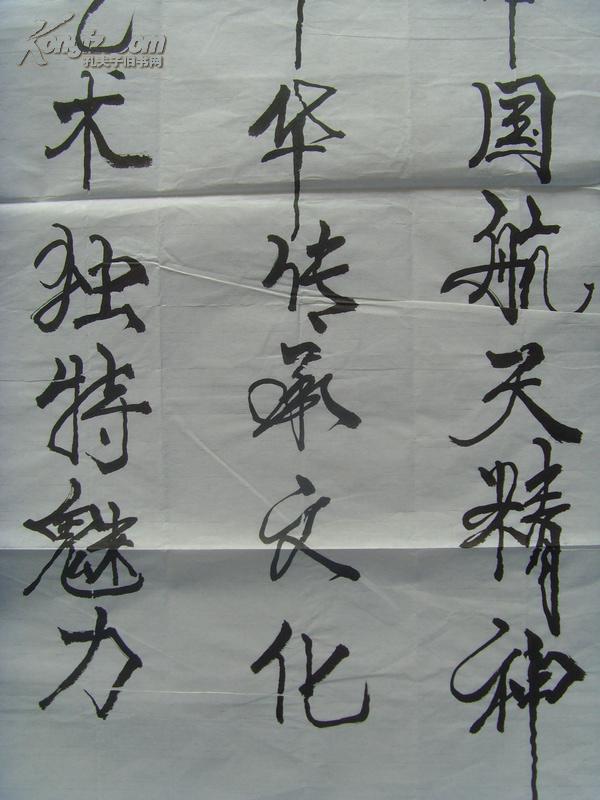 中国航天精神
中华传承文化
艺术独特魅力
Kongfz.com
孔夫子旧书网